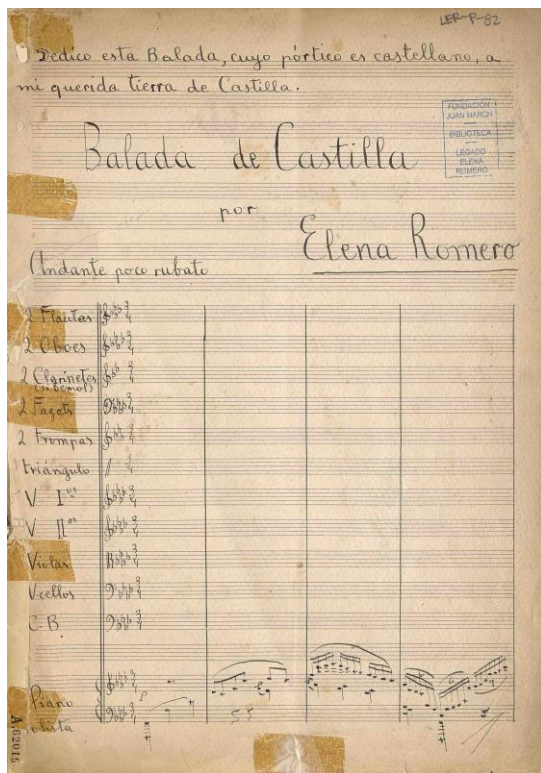 LER-P-82
Dedico esta Balada, cuyo pórtico es castellano, a
mi querida tierra de Castilla.
FUNDACIÓN
JUAN MARCH
BIBLIOTECA
LEGADO
ELENA
ROMERO
Balada de Castilla
por
Elena Romero
Andante poco rubato
2 Flautas
2 Oboes
2 Clarinetes
(si bemol)
2 Fagots
2 trompas
triángulo
V Ios
V IIos
Violas
Vcellos
C.B
Piano
solista
A02015